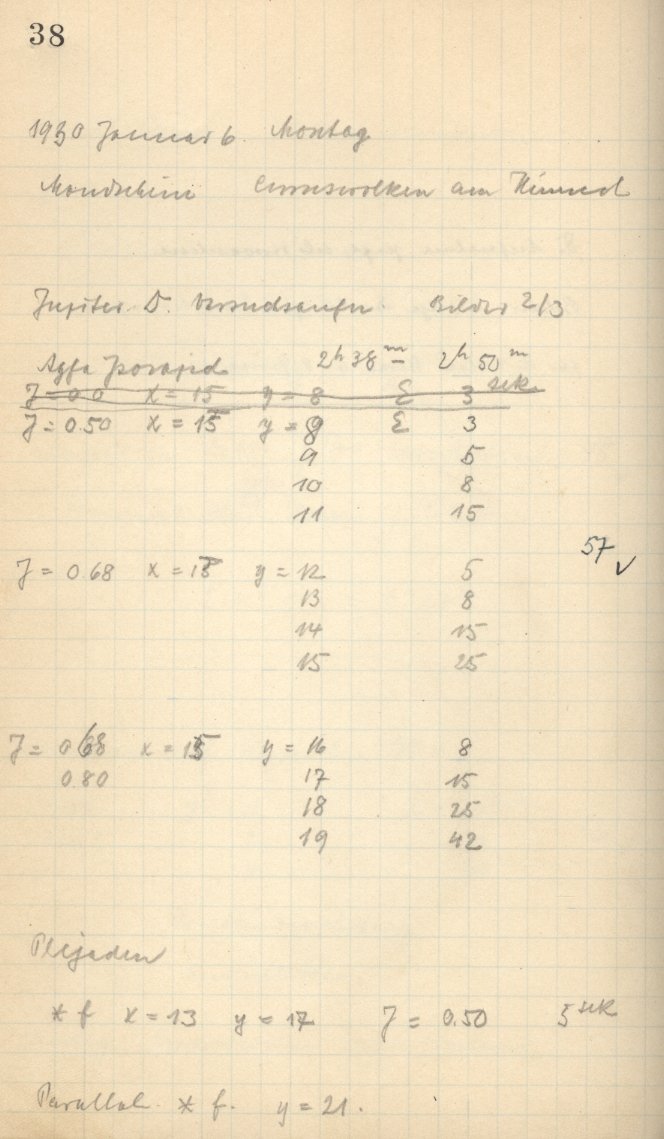 38
1930 Januar 6. Montag
Mondschein Cirruswolken am Himmel
Jupiter D. Versuchsaufn. Bilder 2/3
Agfa Isorapid 2h 38m – 2h 50m
J = 0.0 x = 15 y = 8 E 3 sek
J = 0.50 x = 15 y = 8 E 3
9 5
10 8
11 15
57 ✓
J = 0.68 x = 15 y = 12 5
13 8
14 15
15 25
J = 0.68 x = 15 y = 16 8
0.80 17 15
18 25
19 42
Plejaden
* f x = 13 y = 17 J = 0.50 5 sek
Parallel. * f. y = 21.